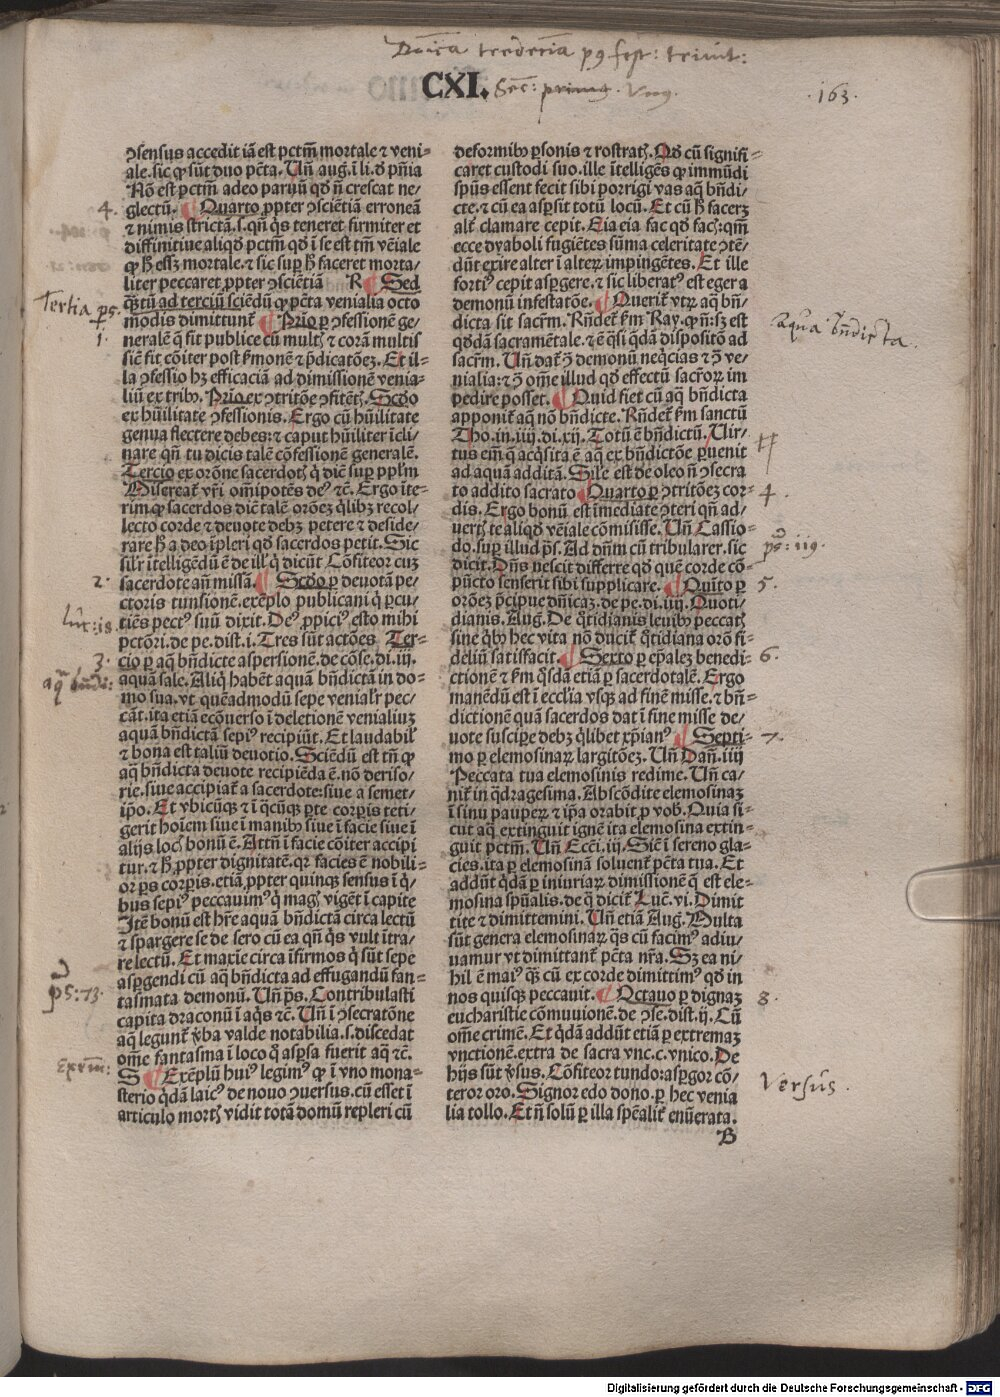 CXI.
163.
ɔsensus accedit iā est pctm̄ mortale ⁊ veni-
ale. sic ꝙ sūt duo pctā. Uñ aug. ī li. d̄ pñia
Nō est pctm̄ adeo paruū qd̓ nō crescat ne-
glectū. Quarto ꝓpter ɔsciētiā erroneā
⁊ nimis strictā. s. qñ q̓s teneret firmiter et
diffinitiue aliqd̓ pctm̄ qd̓ ī se est tm̄ vēiale
ꝙ hͦ essꝫ mortale. ⁊ sic suꝑ hͦ faceret morta-
liter peccaret ꝓpter ɔsciētiā R Sed
q̄ꝫtū ad terciū sciēdū ꝙ pctā venialia octo
modis dimittunt̄ Prīo ꝑ ɔfessionē ge-
neralē q̄ fit publice cū mult̄ ⁊ corā multis
sic̄ fit cōiter post s̓monē ⁊ p̓dicatōeꝫ. Et il-
la ɔfessio hꝫ efficaciā ad dimissionē venia-
liū ex tribꝰ. Prīo ex ɔtritōe ɔfitēt̄. Scd̓o
ex hūilitate ɔfessionis. Ergo cū hūilitate
genua flectere debes: ⁊ caput hūiliter īcli-
nare qñ tu dicis talē cōfessionē generalē.
Tercio ex orōne sacerdot̄ q̓ dic̄ suꝑ ppl̓m
Misereat̄ vr̄i om̄ipotēs deꝰ ⁊c. Ergo īte-
rim ꝙ sacerdos dic̄ talē orōeꝫ q̓libꝫ recol-
lecto corde ⁊ deuote debꝫ petere ⁊ deside-
rare hͦ a deo īpleri qd̓ sacerdos petit. Sic
silr̄ ītelligēdū ē de ill̓ q̓ dicūt Cōfiteor cuꝫ
sacerdote añ missā. Scd̓o ꝑ deuotā pe-
ctoris tunsionē. exēplo publicani q̓ ꝑcu-
tiēs pectꝰ suū dixit. Deꝰ ꝓpiciꝰ esto mihi
pctōri. de pe. dist. i. Tres sūt actōes Ter-
cio ꝑ aq̄ bñdicte aspersionē. de cōse. di. iii.
aquā sale. Aliq̓ habēt aquā bñdictā in do-
mo sua. vt quēadmodū sepe venialr̄ pec-
cāt. ita etiā ecōuerso ī deletionē venialiuꝫ
aquā bñdictā sepiꝰ recipiūt. Et laudabil̓
⁊ bona est taliū deuotio. Sciēdū est tñ ꝙ
aq̄ bñdicta deuote recipiēda ē. nō deriso-
rie. siue accipiat̄ a sacerdote: siue a semet-
ip̄o. Et vbicūqꝫ ⁊ ī q̄cūqꝫ ꝑte corꝑis teti-
gerit hoīem siue ī manibꝰ siue ī facie siue ī
alijs loc̄ bonū ē. Attñ ī facie cōiter accipi
tur. ⁊ hͦ ꝓpter dignitatē. qr facies ē nobili-
or ꝑs corꝑis. etiā ꝓpter quinqꝫ sensus ī q̓-
bus sepiꝰ peccauimꝰ q̓ maḡ vigēt ī capite
Itē bonū est hr̄e aquā bñdictā circa lectū
⁊ spargere se de sero cū ea qñ q̓s vult ītra-
re lectū. Et maxīe circa īfirmos q̓ sūt sepe
asꝑgendi cū aq̄ bñdicta ad effugandū fan-
tasmata demonū. Uñ ps̄. Contribulasti
capita draconū ī aq̓s ⁊c. Uñ ī ɔsecratōne
aq̄ legunt̄ v̓ba valde notabilia. s. discedat
om̄e fantasma ī loco q̄ asꝑsa fuerit aq̄ ⁊c.
S Exēplū huiꝰ legimꝰ ꝙ ī vno mona-
sterio q̓dā laicꝰ de nouo ɔuersus. cū esset ī
articulo mort̄ vidit totā domū repleri cū
deformibꝰ ꝑsonis ⁊ rostrat̄. Qd̓ cū signifi-
caret custodi suo. ille ītelligēs ꝙ immūdi
spūs essent fecit sibi porrigi vas aq̄ bñdi-
cte. ⁊ cū ea asꝑsit totū locū. Et cū hͦ facerꝫ
alt̄ clamare cepit. Eia eia fac qd̓ fac̄: qm̄
ecce dyaboli fugiētes sūma celeritate ɔtē-
dūt exire alter ī alteꝝ impingētes. Et ille
fortiꝰ cepit asꝑgere. ⁊ sic liberatꝰ est eger a
demonū infestatōe. Querit̄ vtꝝ aq̄ bñ-
dicta sit sacr̄m. Rñdet s̓m Ray. ꝙ ñ: sꝫ est
qd̓dā sacramētale. ⁊ ē q̓si q̓dā dispositō ad
sacr̄m. Uñ dat̄ ɔ̄ demonū neq̓cias ⁊ ɔ̄ ve-
nialia: ⁊ ɔ̄ om̄e illud qd̓ effectū sacr̄oꝝ im
pedire posset. Quid fiet cū aq̄ bñdicta
apponit̄ aq̄ nō bñdicte. Rñdet̄ s̓m sanctū
Tho. in. iiij. di. xij. Totū ē bñdictū. Uir-
tus em̄ q̄ acq̓sita ē aq̄ ex bñdictōe ꝑuenit
ad aquā additā. Sil̓e est de oleo ñ ɔsecra
to addito sacrato Quarto ꝑ ɔtritōeꝫ cor-
dis. Ergo bonū est īmediate ɔteri qñ ad-
uert̄ te aliqd̓ vēiale cōmisisse. Uñ Cassio-
do. suꝑ illud ps̄. Ad dñm cū tribularer. sic
dicit. Dñs nescit differre qd̓ quē corde cō-
pūcto senserit sibi supplicare. Quīto ꝑ
orōeꝫ p̄cipue dñicaꝫ. de pe. di. iiij. Quoti-
dianis. Aug. De q̓tidianis leuibꝰ peccat̄
sine q̓bꝰ hec vita nō ducit̄ q̓tidiana orō fi-
deliū satisfacit. Sexto ꝑ ep̄alеꝫ benedi-
ctionē ⁊ s̓m q̓sdā etiā ꝑ sacerdotalē. Ergo
manēdū est ī ecclīa vsqꝫ ad finē misse. ⁊ bñ-
dictionē quā sacerdos dat ī fine misse de-
uote suscipe debꝫ q̓libet xp̄ianꝰ Septi-
mo ꝑ elemosinaꝝ largitōeꝫ. Uñ Dañ. iiij
Peccata tua elemosinis redime. Uñ ca-
nit̄ in q̓dragesima. Abscōdite elemosinaꝫ
ī sinu pauperꝝ ⁊ ip̄a orabit ꝓ vob̄. Quia si-
cut aq̄ extinguit ignē ita elemosina extin-
guit pctm̄. Uñ Ecci. iij. Sic̄ ī sereno gla-
cies. ita ꝑ elemosinā soluent̄ pctā tua. Et
addūt q̓dā ꝑ iniuriaꝝ dimissionē q̄ est ele-
mosina spūalis. de q̄ dicit̄ Luc̄. vi. Dimit
tite ⁊ dimittemini. Uñ etiā Aug. Multa
sūt genera elemosinaꝝ q̄s cū facimꝰ adiu-
uamur vt dimittant̄ pctā nr̄a. Sꝫ ea ni-
hil ē maiꝰ q̄ꝫ cū ex corde dimittimꝰ qd̓ in
nos quisqꝫ peccauit. Octauo ꝑ dignaꝫ
eucharistie cōmuuionē. de ɔse. dist. ij. Cū
om̄e crimē. Et q̓dā addūt etiā ꝑ extremaꝫ
vnctionē. extra de sacra vnc. c. vnico. De
hijs sūt v̓sus. Cōfiteor tundo: asꝑgor cō-
teror oro. Signor edo dono. ꝑ hec venia
lia tollo. Et ñ solū ꝑ illa sp̄ealit̄ enūerata.
B
4.
Tertia ps.
1.
2.
3.
aq̄ bn̄di:
ps: 73.
exem̄:
aqua bn̄dicta.
4.
5.
6.
7.
8.
Versus.
Digitalisierung gefördert durch die Deutsche Forschungsgemeinschaft - DFG